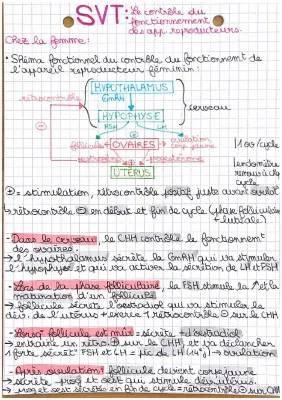 SVT: Le contrôle du
fonctionnement
des app. reproducteurs.
Chez la femme:
• Shéma fonctionnel du contrôle du fonctionnement de
l'appareil reproducteur féminin:
rétrocontrôle
HYPOTHALAMUS
GnRH
cerveau
HYPOPHYSE
FSH LH
follicule OVAIRES ovulation
corp jaune
1 ov/cycle
progestérone
UTÉRUS
⊕ = stimulation, rétrocontrôle positif juste avant ovulat°
→ rétrocontrôle ⊖ en début et fin de cycle (phase folliculaire
+ lutéale)
- Dans le cerveau, le CHH contrôle le fonctionnement
des ovaires.
→ l'hypothalamus sécrète la GnRH qui va stimuler
l'hypophyse et qui va activer la sécrétion de LH et FSH
- Lors de la phase folliculaire, la FSH stimule la et la
maturation d'un follicule
→ follicule sécrète l'oestradiol qui va stimuler le
dév. de l'utérus + exerce 1 rétrocontrôle ⊖ sur le CHH
- Lorsq follicule est mûr = sécrète +d'oestradiol
→ entraîne un rétro ⊕ sur le CHH et va déclencher
1 forte sécrét° FSH et LH = pic de LH (14e j) → ovulation
- Après ovulation: follicule devient corps jaune
→ sécrète prog et oest qui stimule dév. utérus.
→ prog et oest sécrétés en fin de cycle = rétrocontrôle ⊖ sur CHH